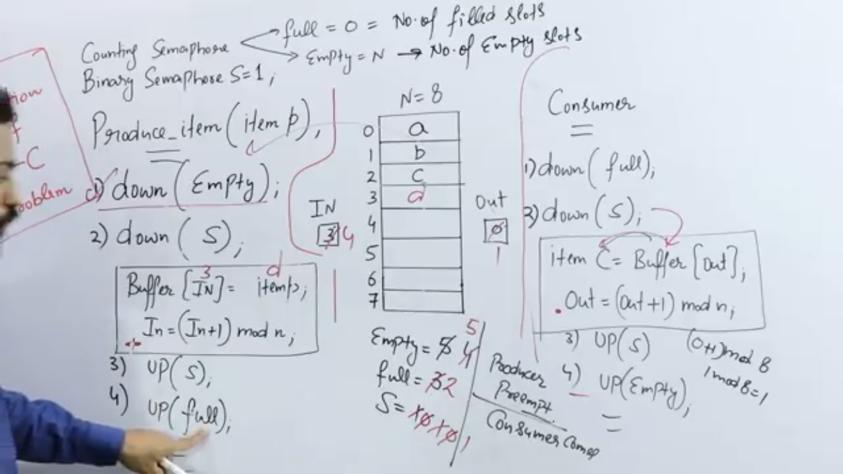 Counting Semaphore
full = 0 = No. of filled slots
Empty = N → No. of Empty slots
Binary Semaphore S=1;
Produce_item(item p);
1) down(Empty);
2) down(S);
Buffer[IN] = itemp;
3
d
In = (In+1) mod n;
3) UP(S);
4) UP(full);
N = 8
0 a
1 b
2 c
3 d
4
5
6
7
IN
3 4
Out
0
1
Empty = 5 4 5
full = 3 2
S = 1 0 1 0 1
Producer
Preempt
Consumer
Consumer
1) down(full);
2) down(S);
item C = Buffer[Out];
Out = (Out+1) mod n;
3) UP(S)
4) UP(Empty);
(0+1) mod 8
1 mod 8 = 1
C
problem